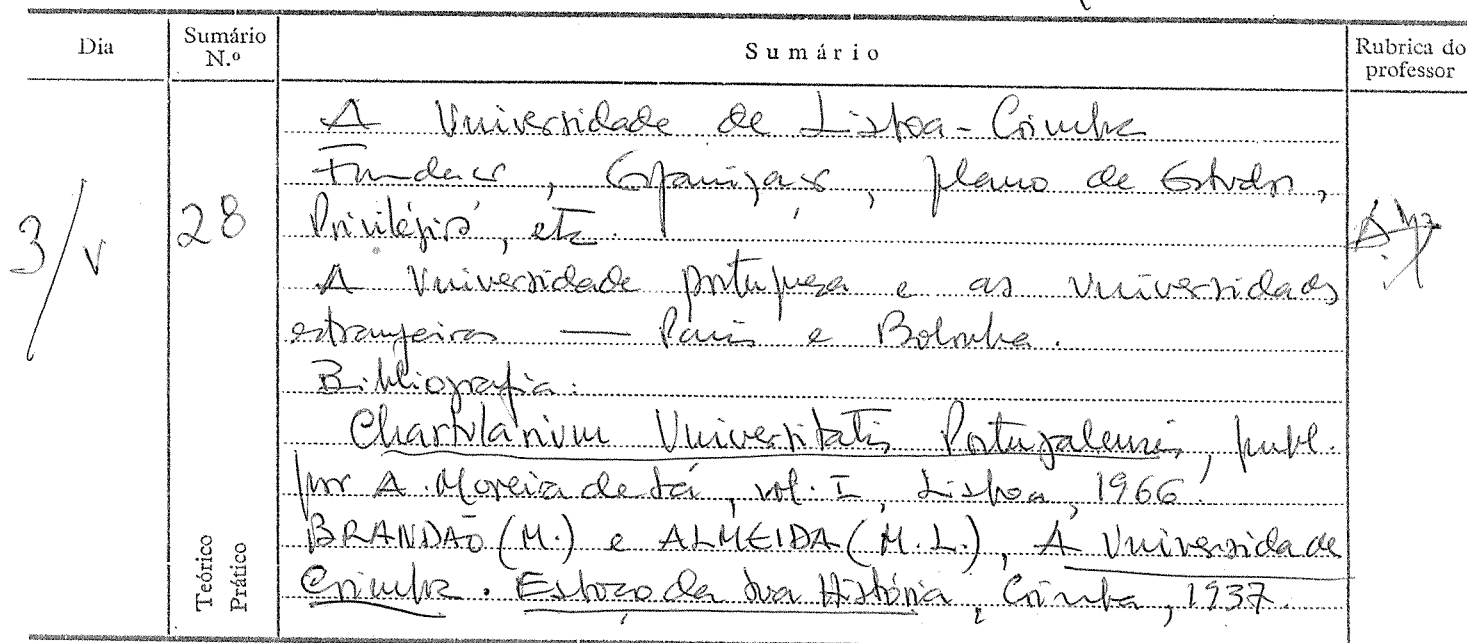 Dia
Sumário N.º
Sumário
Rubrica do professor
3/V
28
Teórico
Prático
A Universidade de Lisboa-Coimbra
Fundação, Organização, plano de Estudos,
Privilégios, etc.
A Universidade portuguesa e as Universidades
estrangeiras — Paris e Bolonha.
Bibliografia:
Chartularium Universitatis Portugalensis, publ.
por A. Moreira de Sá, vol. I, Lisboa, 1966.
BRANDÃO (M.) e ALMEIDA (M.L.), A Universidade de
Coimbra. Esboço da sua História, Coimbra, 1937.